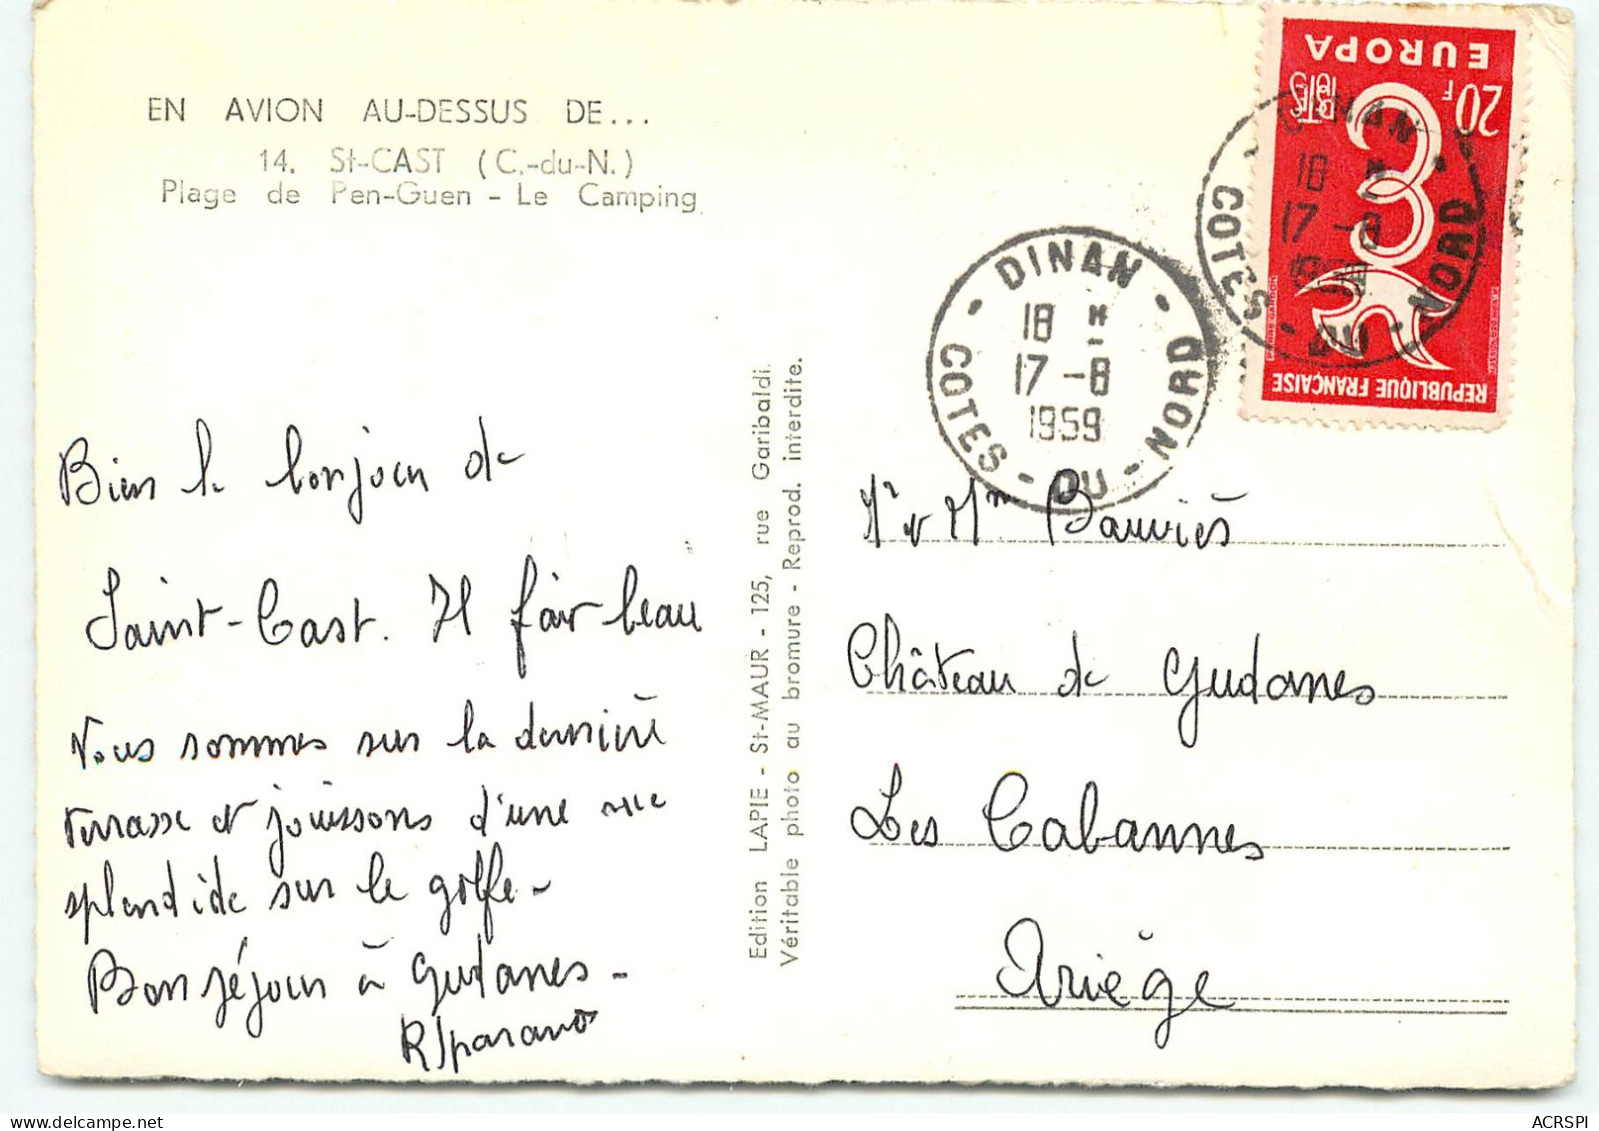 EN AVION AU-DESSUS DE...
14. St-CAST (C.-du-N.)
Plage de Pen-Guen - Le Camping
Bien le bonjour de
Saint-Cast. Il fait beau
Nous sommes sur la dernière
terrasse et jouissons d'une vue
splendide sur le golfe -
Bon séjour à Gudanes -
Edition LAPIE - St-MAUR - 125, rue Garibaldi.
Véritable photo au bromure - Reprod. interdite.
EUROPA
20F
POSTES
REPUBLIQUE FRANÇAISE
DINAN
18 H
17 -8
1959
COTES - DU - NORD
DINAN
18 H
17 -8
1959
COTES - DU - NORD
Mr & Mme Bauviès
Château de Gudanes
Les Cabannes
Ariège
ACRSPI